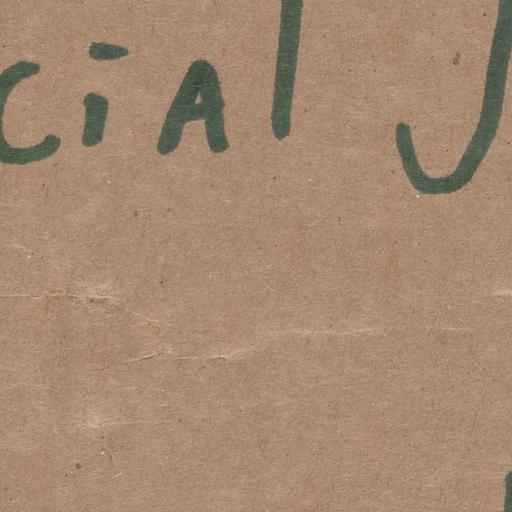 ciAl J